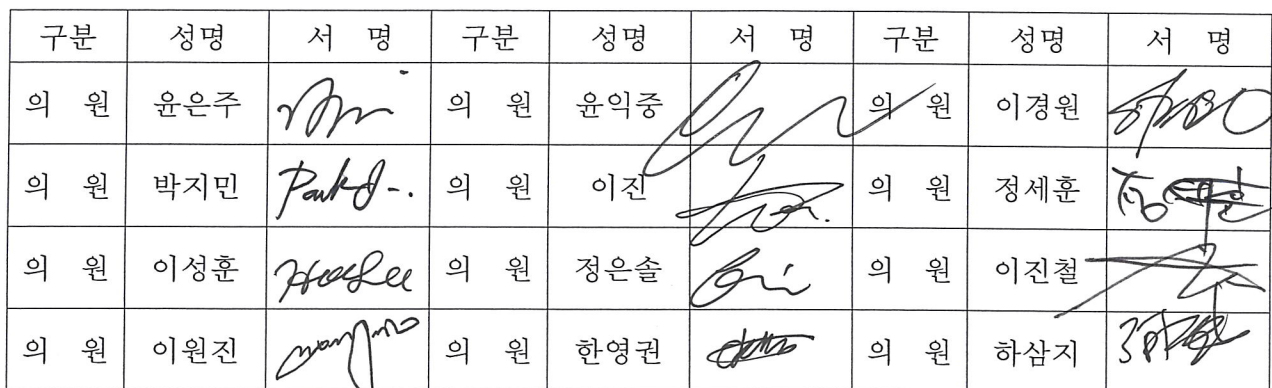 구분 성명 서 명 구분 성명 서 명 구분 성명 서 명
의 원 윤은주 의 원 윤익중 의 원 이경원
의 원 박지민 Park 의 원 이진 의 원 정세훈
의 원 이성훈 의 원 정은솔 의 원 이진철
의 원 이원진 의 원 한영권 의 원 하삼지